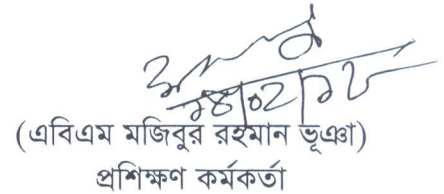 (এবিএম মজিবুর রহমান ভূঞা)
প্রশিক্ষণ কর্মকর্তা